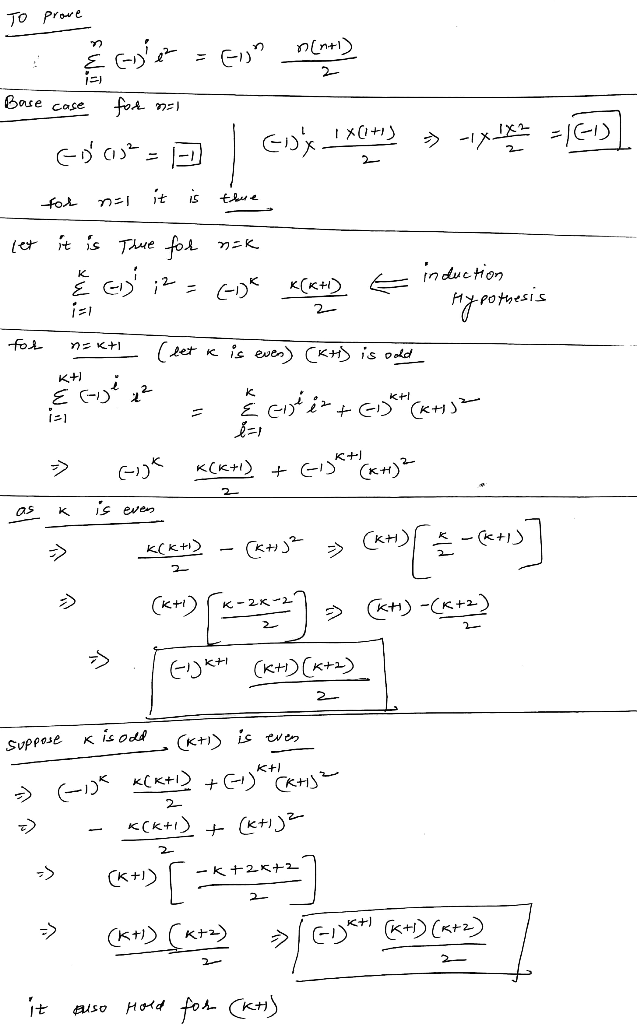 To Prove
n Σ i=1 (-1)^i i² = (-1)^n n(n+1)/2
Base case for n=1
(-1)¹ (1)² = -1 | (-1)¹ × 1×(1+1)/2 ⇒ -1 × 1×2/2 = (-1)
for n=1 it is true
let it is True for n=K
K Σ i=1 (-1)^i i² = (-1)^K K(K+1)/2 ⇐ induction Hypothesis
for n=K+1 (let K is even) (K+1) is odd
K+1 Σ i=1 (-1)^i i² = K Σ i=1 (-1)^i i² + (-1)^K+1 (K+1)²
⇒ (-1)^K K(K+1)/2 + (-1)^K+1 (K+1)²
as K is even
⇒ K(K+1)/2 - (K+1)² ⇒ (K+1) [K/2 - (K+1)]
⇒ (K+1) [K-2K-2/2] ⇒ (K+1) -(K+2)/2
⇒ (-1)^K+1 (K+1)(K+2)/2
Suppose K is odd, (K+1) is even
⇒ (-1)^K K(K+1)/2 + (-1)^K+1 (K+1)²
⇒ - K(K+1)/2 + (K+1)²
⇒ (K+1) [-K+2K+2/2]
⇒ (K+1)(K+2)/2 ⇒ (-1)^K+1 (K+1)(K+2)/2
it also Hold for (K+1)